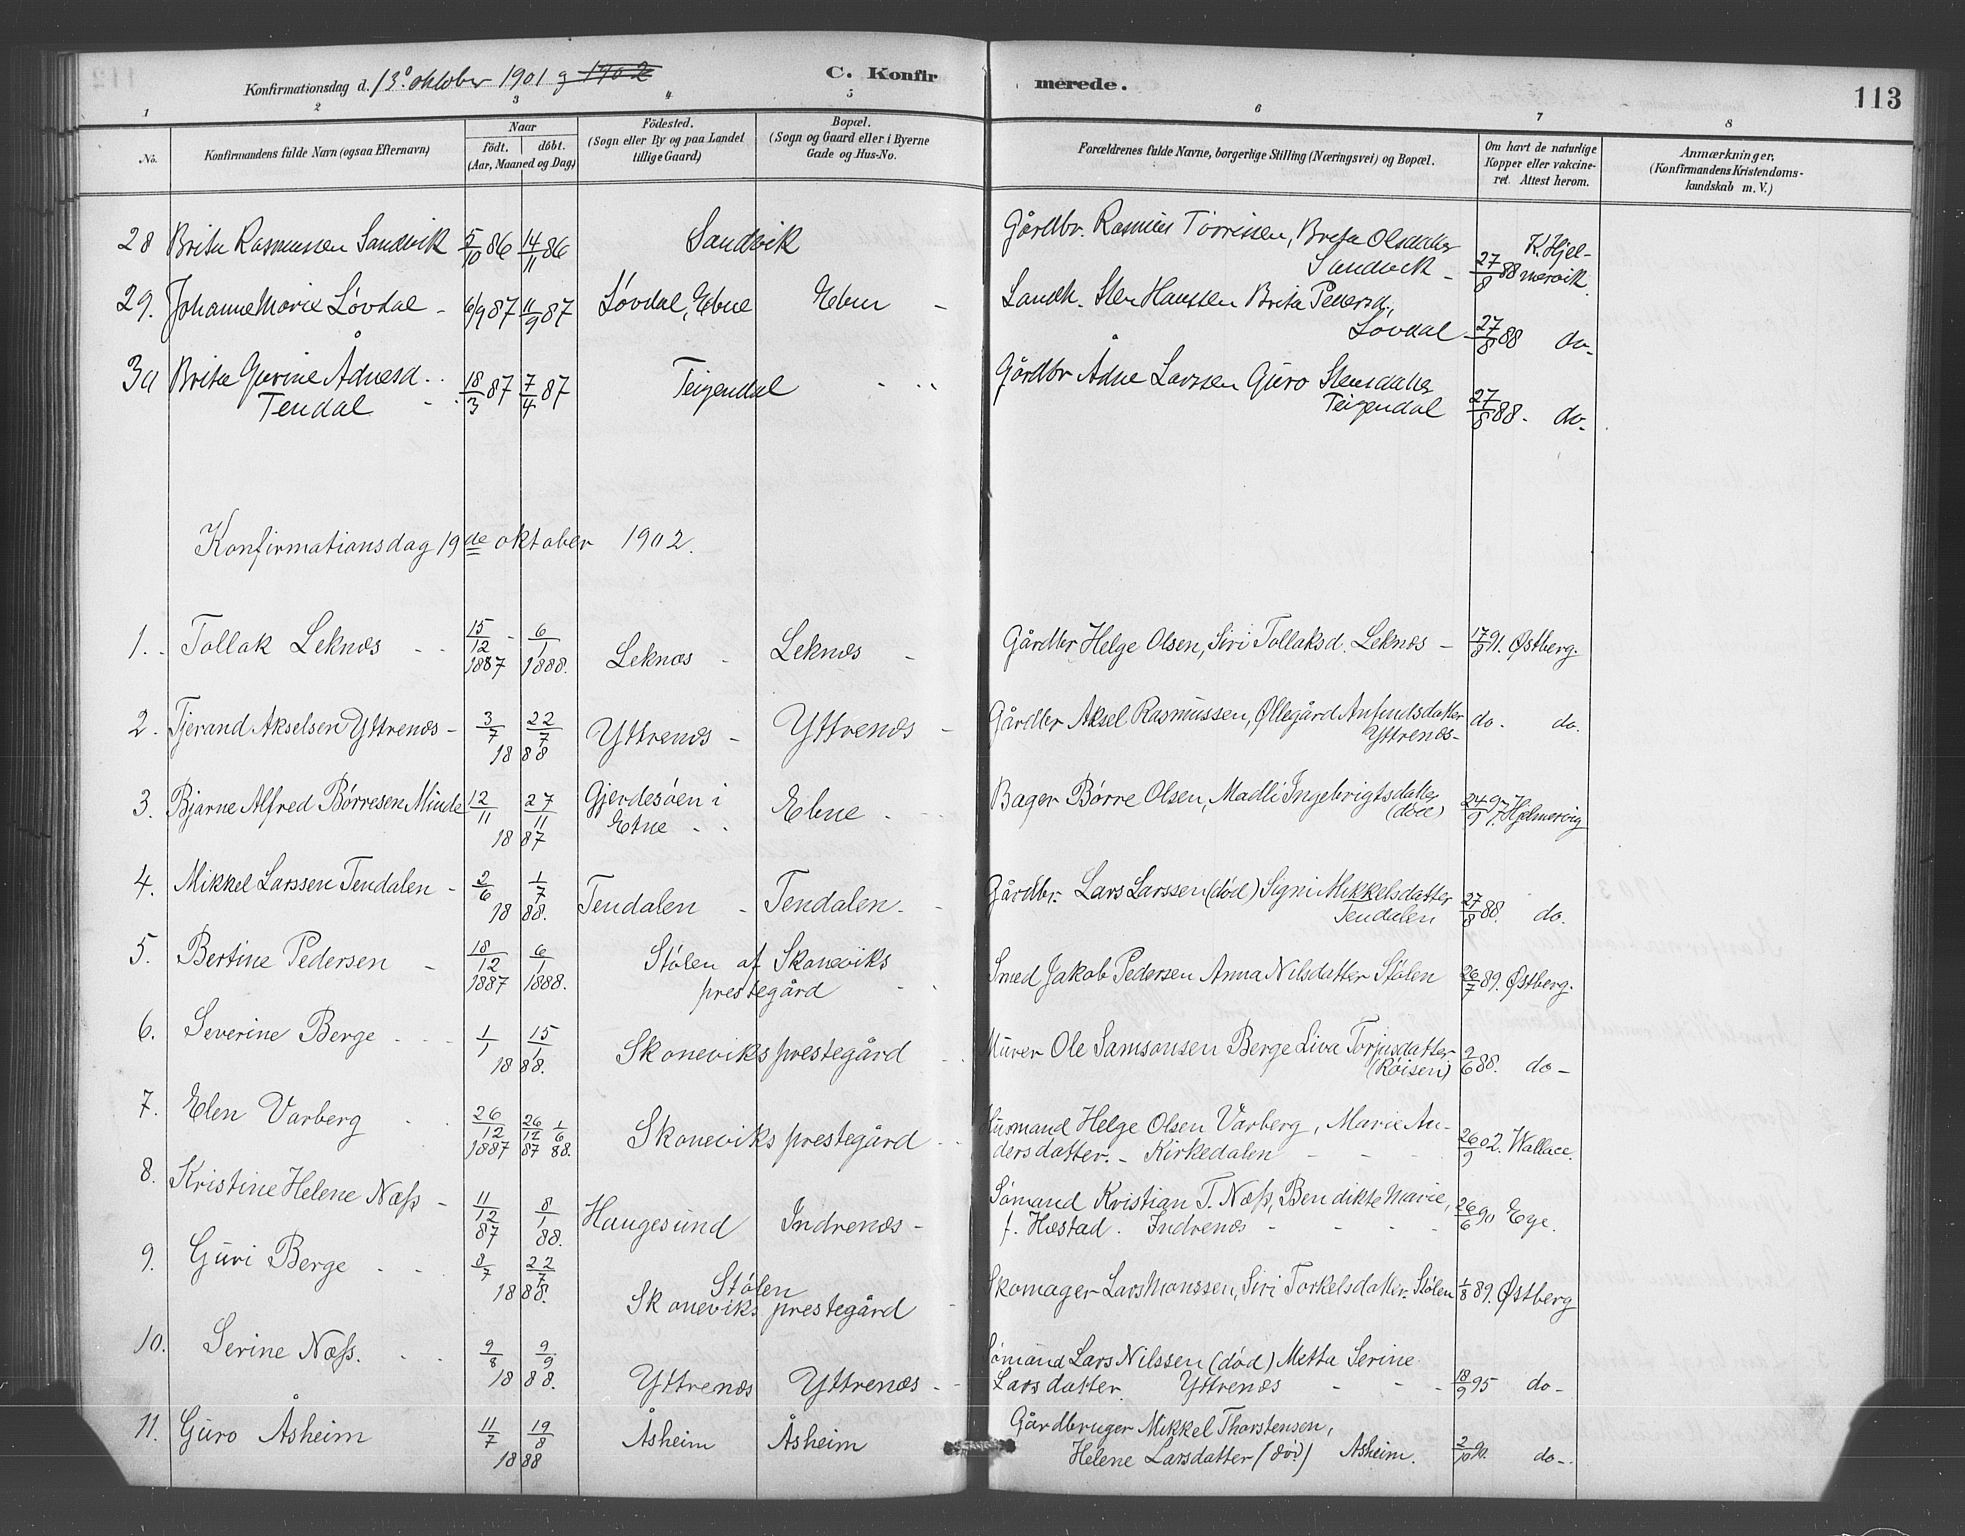 Konfirmationsdag d. 13. oktober 1901 g 1902
C. Konfirmerede.
113
1 2 3 4 5 6 7 8
No.
Konfirmandens fulde Navn (ogsaa Efternavn)
Naar
födt. döbt.
(Aar, Maaned og Dag)
Födested.
(Sogn eller By og paa Landet
tillige Gaard)
Bopæl.
(Sogn og Gaard eller i Byerne
Gade og Hus-No.
Forældrenes fulde Navne, borgerlige Stilling (Næringsvei) og Bopæl.
Om havt de naturlige
Kopper eller vakcine-
ret. Attest herom.
Anmærkninger,
(Konfirmandens Kristendoms-
kundskab m. V.)
28 Brita Rasmussen Sandvik 5/10 86 14/11 86 Sandvik Gårdbr. Rasmus Tørrissen, Brita Olsdatter
Sandvik - 27/8 88 K. Hjel-
mervik.
29. Johanne Marie Løvdal - 6/9 87 11/9 87 Løvdal, Etne Etne - Landh. Sten Hanssen Brita Pedersd.,
Løvdal - 27/8 88 do-
30 Brita Gurine Ådnesd. 18/3 87 7/4 87 Teigendal Gårdbr Ådne Larssen Guro Stensdatter
Tendal - Teigendal 27/8 88 - do-
Konfirmationsdag 19de oktober 1902.
1. Tollak Leknæs 15/12 1887 6/1 1888. Leknæs - Leknæs - Gårdbr Helge Olsen, Siri Tollaksd. Leknæs - 17/9 91. Østberg.
2. Tjerand Akselsen Yttrenæs - 3/7 22/7 1888 Yttrenæs - Yttrenæs - Gårdbr Aksel Rasmussen, Øllegård Anfindsdatter
Yttrenæs - do. do.
3. Bjarne Alfred Børresen Minde 12/11 27/11 1887 Gjerdesøen i
Etne Etne Bager Børre Olsen, Madli Ingebrigtsdatter
(død) 24/9 97. Hjelmervig
4. Mikkel Larssen Tendalen - 2/6 1/7 1888. Tendalen - Tendalen - Gårdbr. Lars Larssen (død) Signi Mikkelsdatter
Tendalen 27/8 88. do.
5. Bertine Pedersen - 18/12 1887 6/1 1888. Stølen af Skoneviks
prestegård Smed Jakob Pedersen Anna Nilsdatter Stølen 26/7 89. Østberg.
6. Severine Berge 1/1 15/1 1888. Skoneviks prestegård Murer Ole Samsonsen Berge Liva Torjusdatter
(Røisen) 9/6 88. do -
7. Elen Varberg 26/12 1887 26/12 87 1/6 88. Skoneviks prestegård Husmand Helge Olsen Varberg, Marie An-
dersdatter. - Kirkedalen 26/9 02. Wallace.
8. Kristine Helene Næss - 11/12 87 8/1 88. Haugesund Indrenæs - Sømand Kristian T. Næss, Bendikte Marie,
f. Hæstad. Indrenæs 26/6 90 Ege.
9. Guri Berge 8/7 22/7 1888. Stølen
Skoneviks prestegård Skomager Lars Monssen, Siri Torkelsdatter. Stølen 1/8 89. Østberg
10. Serine Næss. 9/8 9/9 1888. Yttrenæs Yttrenæs - Sømand Lars Nilssen (død) Metta Serine
Larsdatter. Yttrenæs 18/9 95 do -
11. Guro Åsheim 11/7 19/8 1888 Åsheim Åsheim Gårdbruger Mikkel Thorstensen,
Helene Larsdatter (død) Åsheim. do -